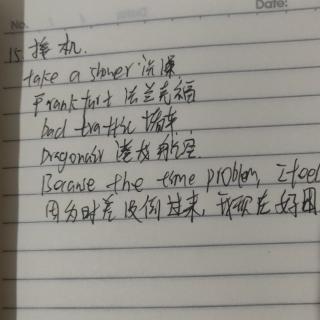 No.
Date:
15. 接机.
take a shower 洗澡
Frankfurt 法兰克福
bad traffic 堵车
Dragonair 港龙航空.
Because the time problem, I feel
因为时差没倒过来,我现在好困